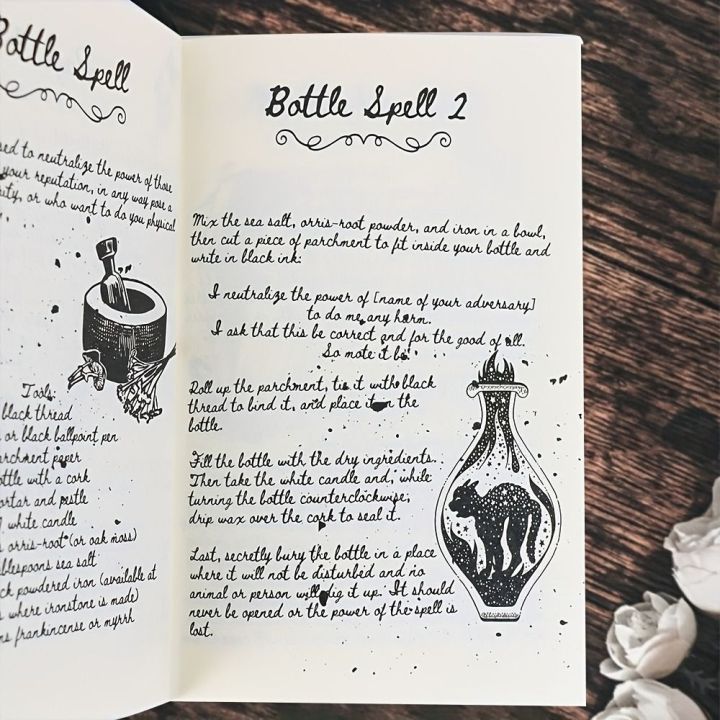 Bottle Spell
to neutralize the power of those
your reputation, in any way pose a
or who want to do you physical
Tools:
black thread
or black ballpoint pen
paper
with a cork
and pestle
white candle
orris-root (or oak moss)
sea salt
powdered iron (available at
where ironstone is made)
frankincense or myrrh
Bottle Spell 2
Mix the sea salt, orris-root powder, and iron in a bowl,
then cut a piece of parchment to fit inside your bottle and
write in black ink:
I neutralize the power of [name of your adversary]
to do me any harm.
I ask that this be correct and for the good of all.
So mote it be.
Roll up the parchment, tie it with black
thread to bind it, and place it in the
bottle.
Fill the bottle with the dry ingredients.
Then take the white candle and, while
turning the bottle counterclockwise,
drip wax over the cork to seal it.
Last, secretly bury the bottle in a place
where it will not be disturbed and no
animal or person will dig it up. It should
never be opened or the power of the spell is
lost.